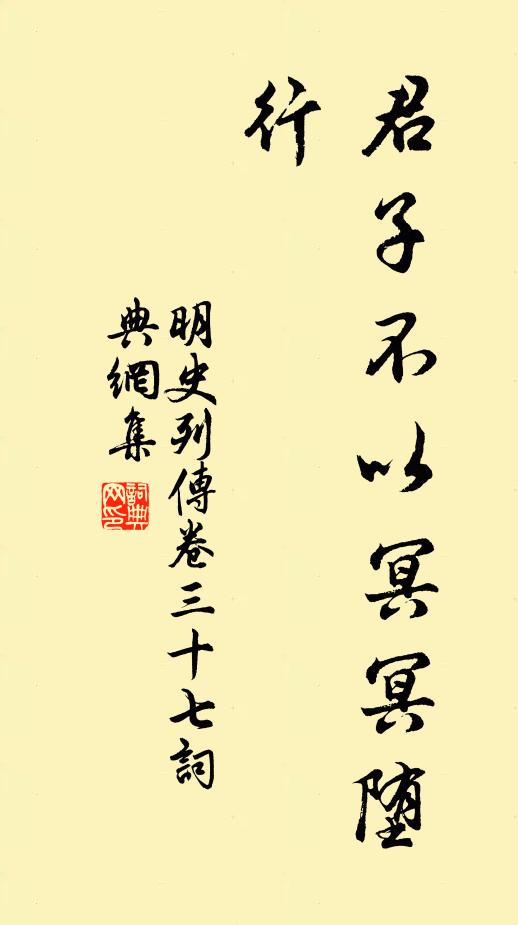 君子不以冥冥堕
行
明史列傳卷三十七詞
典網集
詞典
网印